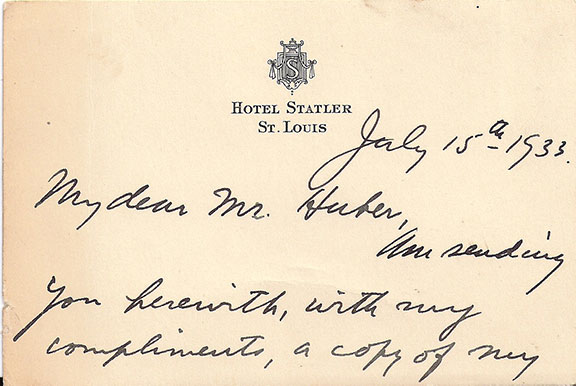 S
HOTEL STATLER
ST. LOUIS
July 15th 1933.
My dear Mr. Huber,
Am sending
you herewith, with my
compliments, a copy of my